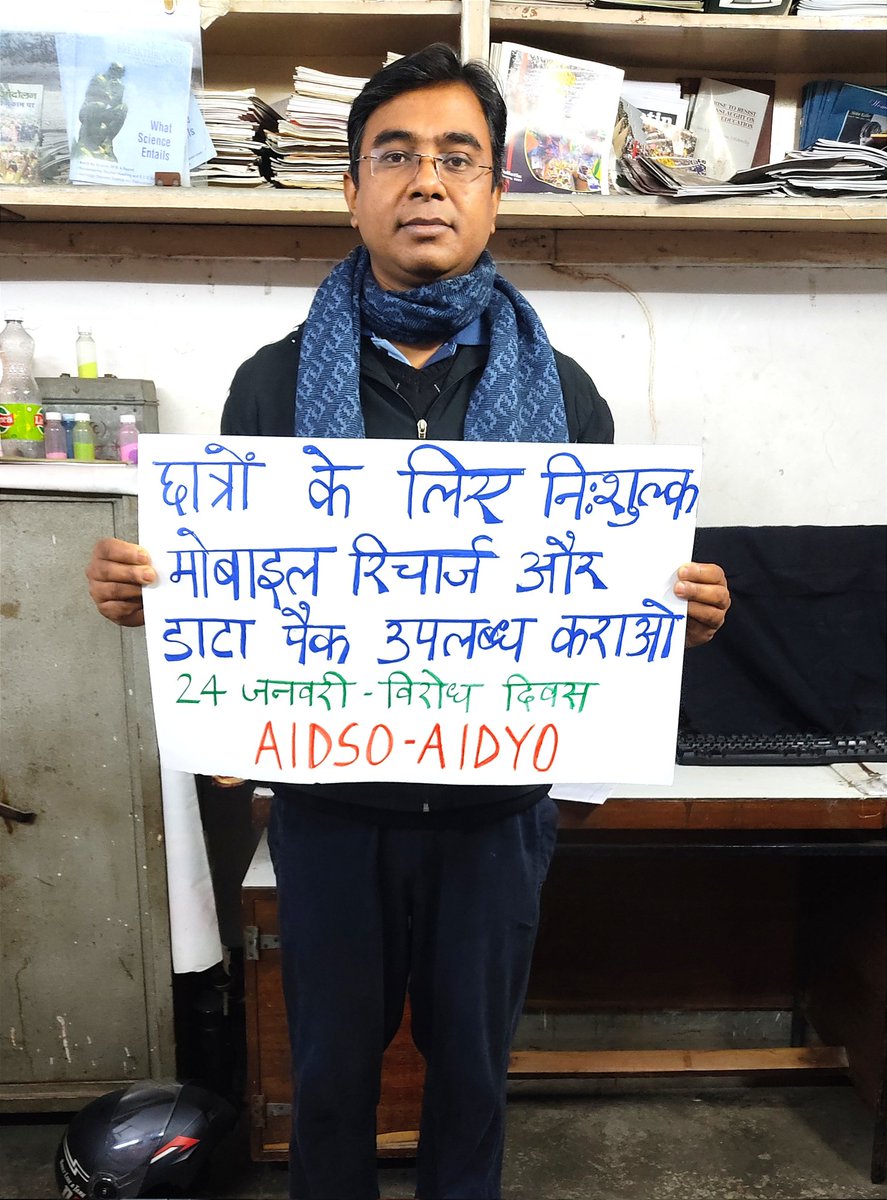 What
Science
Entails
छात्रों के लिए निःशुल्क
मोबाइल रिचार्ज और
डाटा पैक उपलब्ध कराओ
24 जनवरी - विरोध दिवस
AIDSO-AIDYO